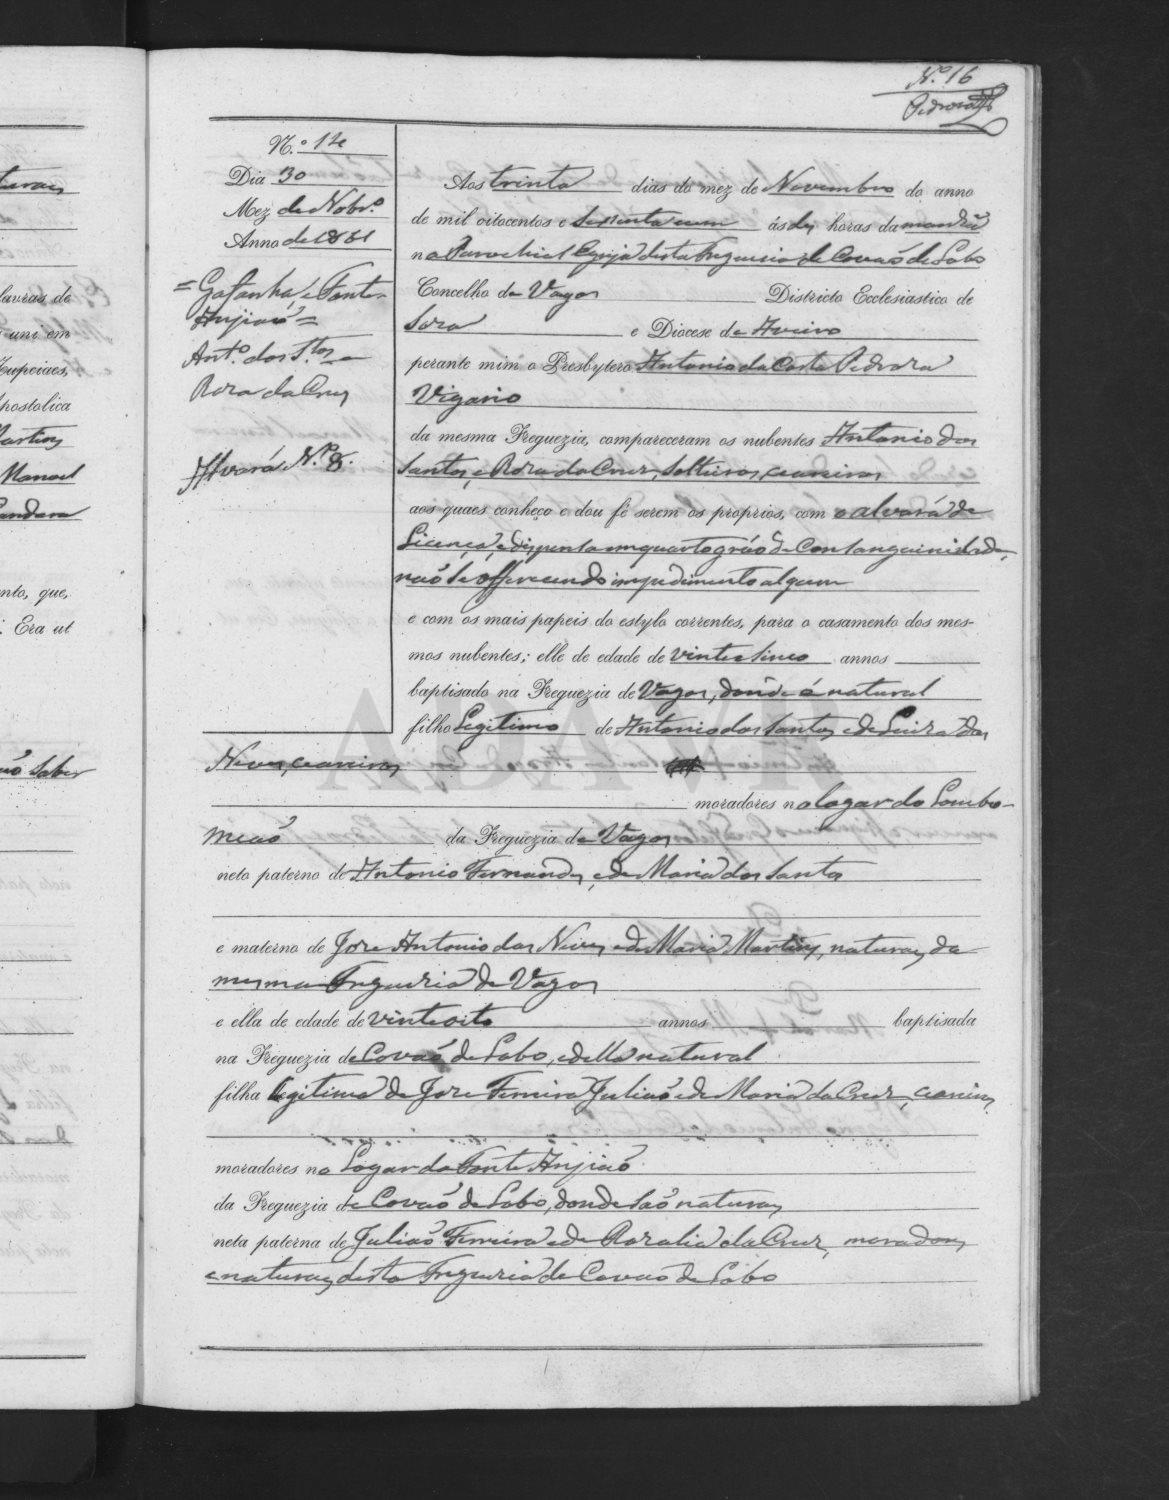 N.º 16
Pedrora
N.º 12
Dia 30
Mez de Nobr.º
Anno de 1861
= Gafanha e Fonte
Anjiaõ =
Ant.º dos S.tos e
Rosa da Cruz
Alvará N.º 8.
Aos trinta dias do mez de Novembro do anno
de mil oitocentos e sessenta e um ás dez horas da manhã
na Parochial Egreja desta Freguesia de Covaõ de Lobo
Concelho de Vagos Districto Ecclesiastico de
Soza e Diocese de Aveiro
perante mim o Presbytero Antonio da Costa Pedrora
Vigario
da mesma Freguezia, compareceram os nubentes Antonio dos
Santos, e Rosa da Cruz, Solteiros, ceareiros
aos quaes conheço e dou fé serem os proprios, com o alvará de
Licença, e dispensa em quarto gráo de Consanguinidade,
naõ se offerecendo impedimento algum
e com os mais papeis do estylo correntes, para o casamento dos mes-
mos nubentes; elle de edade de vinte e sinco annos
baptisado na Freguezia de Vagos, donde é natural
filho Legitimo de Antonio dos Santos, e de Luiza das
Neves, ceareiros
moradores no logar do Lombo-
meaõ da Freguezia de Vagos
neto paterno de Antonio Fernandes, e de Maria dos Santos
e materno de Joze Antonio das Neves, e de Maria Martins, naturaes da
mesma Freguezia de Vagos
e ella de edade de vinte oito annos baptisada
na Freguezia de Covaõ de Lobo, e della natural
filha legitima de Joze Ferreira Juliaõ e de Maria da Cruz, ceareiros
moradores no Logar da Fonte Anjiaõ
da Freguezia de Covaõ de Lobo, donde saõ naturaes
neta paterna de Juliaõ Ferreira e de Rozalia da Cruz, moradores
e naturaes desta Freguezia de Covaõ de Lobo